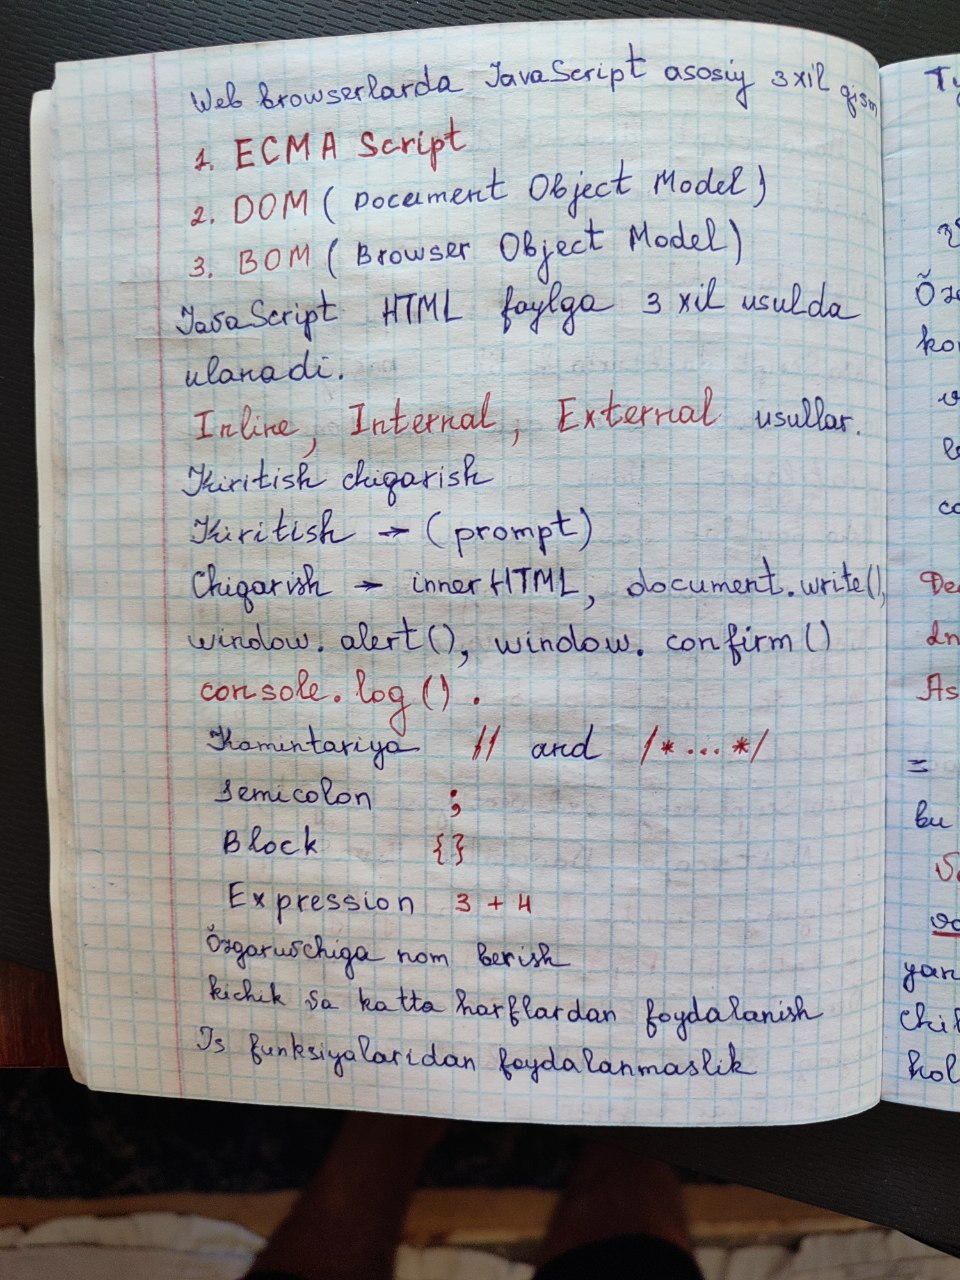 Web browserlarda JavaScript asosiy 3 xil qism
1. ECMA Script
2. DOM ( Document Object Model)
3. BOM ( Browser Object Model)
JavaScript HTML faylga 3 xil usulda
ulanadi.
Inline, Internal, External usullar.
Kiritish chiqarish
Kiritish → (prompt)
Chiqarish → innerHTML, document.write(),
window.alert(), window.confirm()
console.log().
Komintariya // and /*...*/
Semicolon ;
Block {}
Expression 3 + 4
Õzgaruvchiga nom berish
kichik va katta harflardan foydalanish
Js funksiyalaridan foydalanmaslik
Õz
ko
co
De
As
=
bu
yan
chi
kol